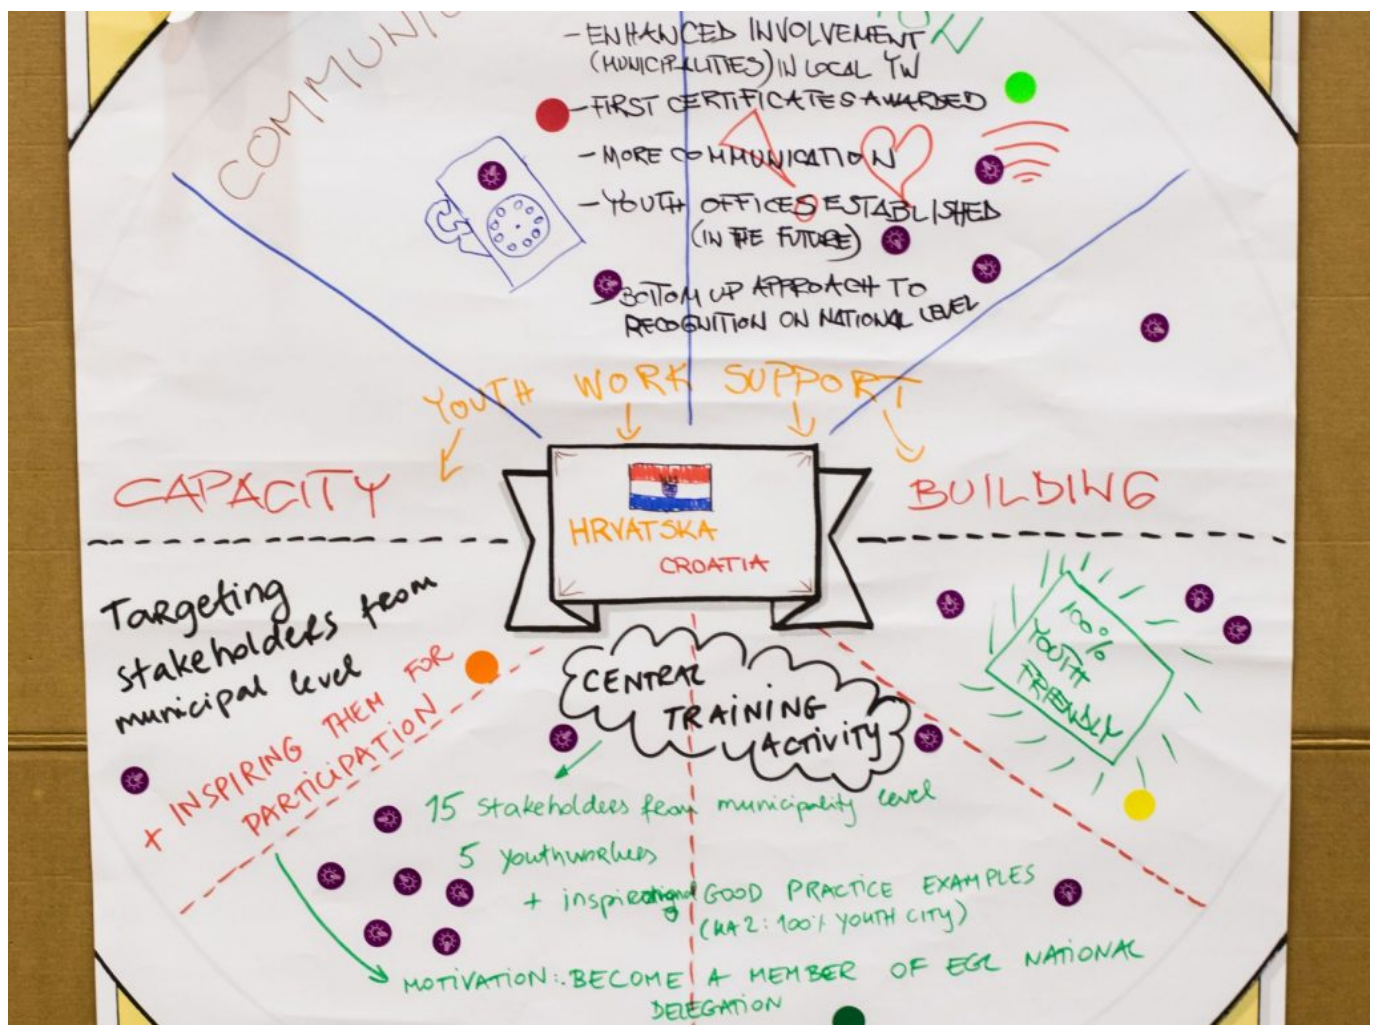 COMMUNIC
- ENHANCED INVOLVEMENT
(MUNICIPALITIES) IN LOCAL YW
- FIRST CERTIFICATES AWARDED
- MORE COMMUNICATION
- YOUTH OFFICES ESTABLISHED
(IN THE FUTURE)
- BOTTOM UP APPROACH TO
RECOGNITION ON NATIONAL LEVEL
YOUTH WORK SUPPORT
CAPACITY BUILDING
HRVATSKA
CROATIA
Targeting
stakeholders from
municipal level
+ INSPIRING THEM FOR
PARTICIPATION
CENTRAL
TRAINING
ACTIVITY
100%
YOUTH
FRIENDLY
15 stakeholders from municipality level
5 youthworkers
+ GOOD PRACTICE EXAMPLES
(KA2: 100% YOUTH CITY)
MOTIVATION: BECOME A MEMBER OF EGL NATIONAL
DELEGATION